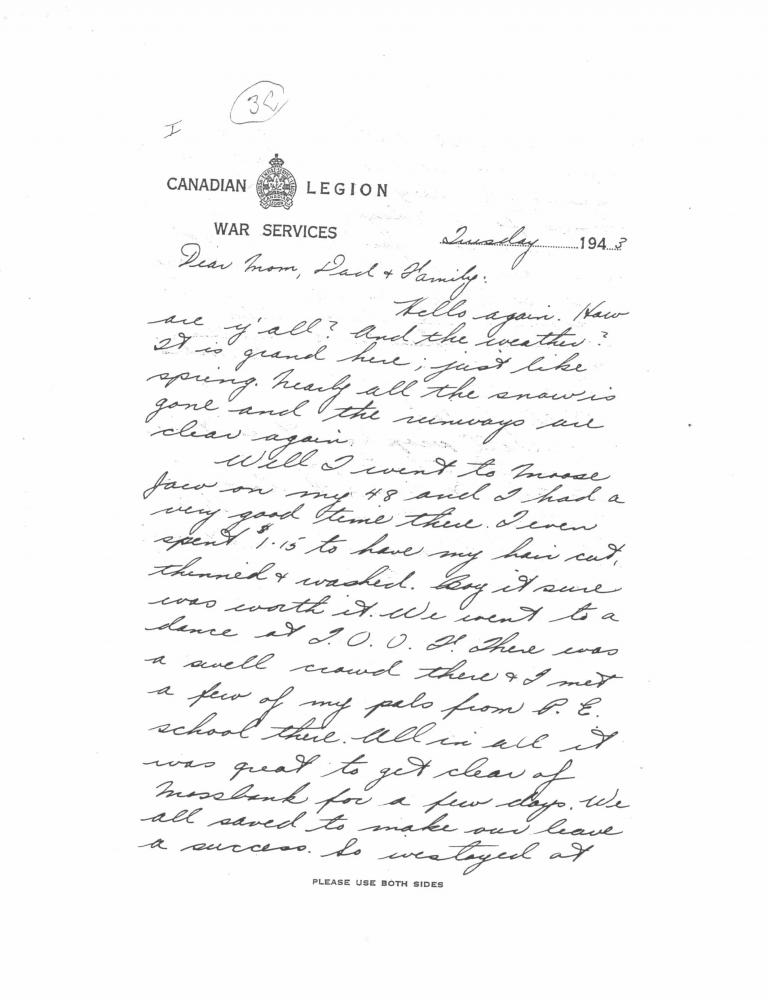 I
CANADIAN LEGION
WAR SERVICES
Tuesday 1943
Dear Mom, Dad & Family:
Hello again. How
are y'all? And the weather?
It is grand here; just like
spring. Nearly all the snow is
gone and the runways are
clear again.
Well I went to Moose
Jaw on my 48 and I had a
very good time there. I even
spent $1.15 to have my hair cut,
thinned & washed. Boy it sure
was worth it. We went to a
dance at I.O.O.F. There was
a swell crowd there & I met
a few of my pals from P.E.
school there. All in all it
was great to get clear of
Mossbank for a few days. We
all saved to make our leave
a success. So we stayed at
PLEASE USE BOTH SIDES